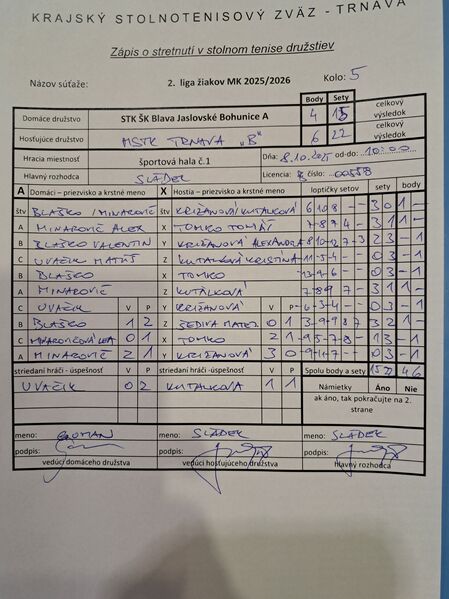 KRAJSKÝ STOLNOTENISOVÝ ZVÄZ - TRNAVA
Zápis o stretnutí v stolnom tenise družstiev
Názov súťaže: 2. liga žiakov MK 2025/2026 Kolo: 5
Body Sety
Domáce družstvo STK ŠK Blava Jaslovské Bohunice A 4 15 celkový výsledok
Hosťujúce družstvo MSTK TRNAVA "B" 6 22 celkový výsledok
Hracia miestnosť športová hala č.1 Dňa: 8.10.2025 od-do: 10:00
Hlavný rozhodca SLÁDEK Licencia: B číslo: 00558
A Domáci – priezvisko a krstné meno X Hostia – priezvisko a krstné meno loptičky setov sety body
štv BLAŠKO / MINAROVIČ štv KRIŽANOVÁ/KUTÁLKOVÁ 3 0 1 -
A MINAROVIČ ALEX X TOMKO TOMÁŠ 7 8 9 4 - 3 1 1 -
B BLAŠKO VALENTÍN Y KRIŽANOVÁ ALEXANDRA 2 3 - 1
C UVAČIK MATÚŠ Z KUTÁLKOVÁ KRISTÍNA 0 3 - 1
B BLAŠKO X TOMKO 0 3 - 1
A MINAROVIČ Z KUTÁLKOVÁ 3 1 1 -
C UVAČIK V P Y KRIŽANOVÁ V P 0 3 - 1
B BLAŠKO 1 2 Z ŠEDIVÁ 0 1 3 2 1 -
C 0 1 X TOMKO 2 1 1 3 - 1
A MINAROVIČ 2 1 Y KRIŽANOVÁ 3 0 0 3 - 1
striedaní hráči - úspešnosť V P striedaní hráči - úspešnosť V P Spolu body a sety 15 22 4 6
UVAČIK 0 2 KUTÁLKOVÁ 1 1 Námietky Áno Nie
ak áno, tak pokračujte na 2. strane
meno: meno: SLÁDEK meno: SLÁDEK
podpis: podpis: podpis:
vedúci domáceho družstva vedúci hosťujúceho družstva hlavný rozhodca